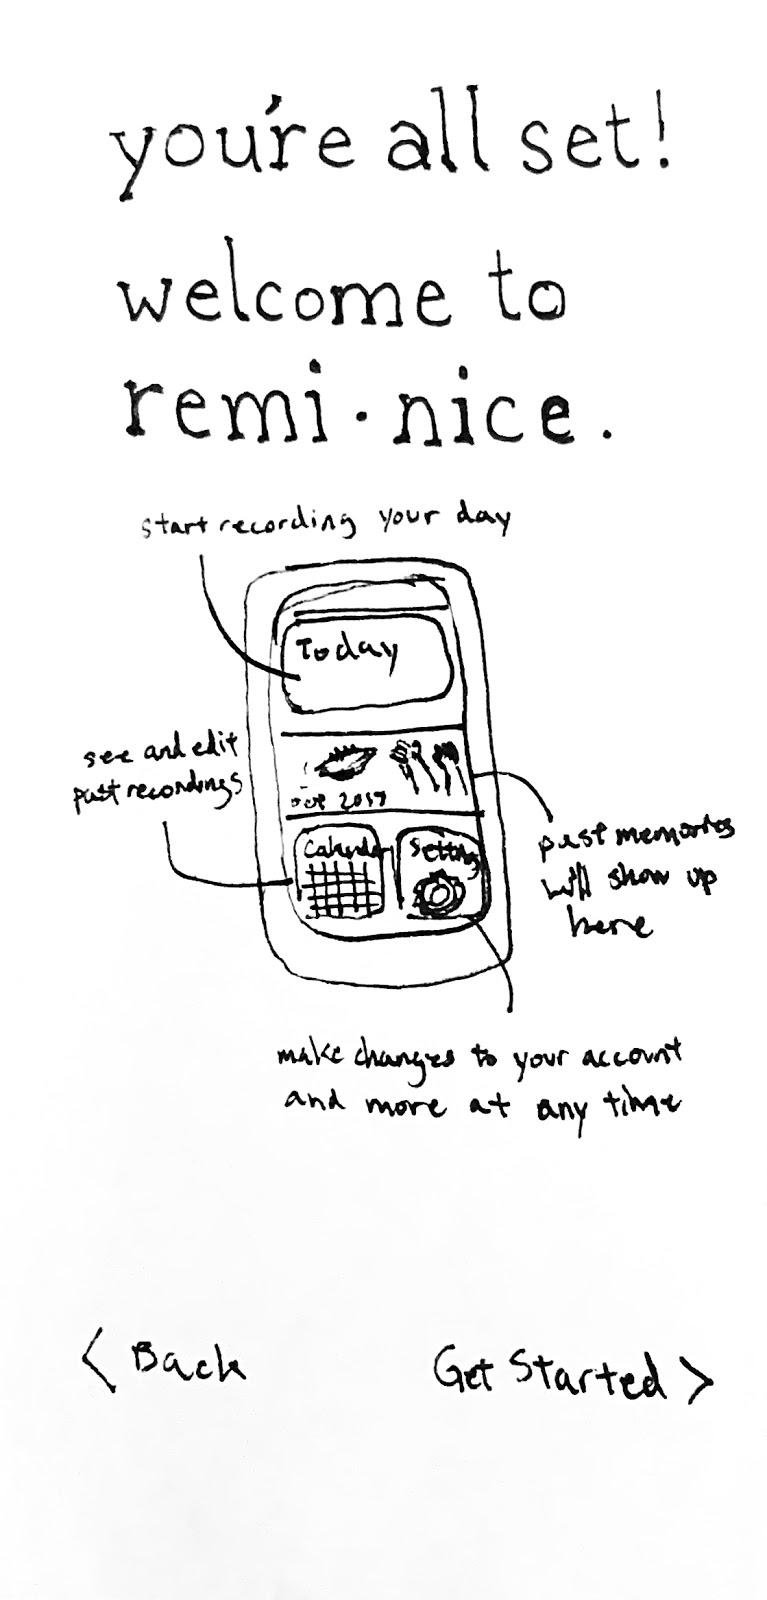 you're all set!
welcome to
remi·nice.
start recording your day
Today
see and edit
past recordings
2017
Calendar
Settings
past memories
will show up
here
make changes to your account
and more at any time
< Back
Get Started >